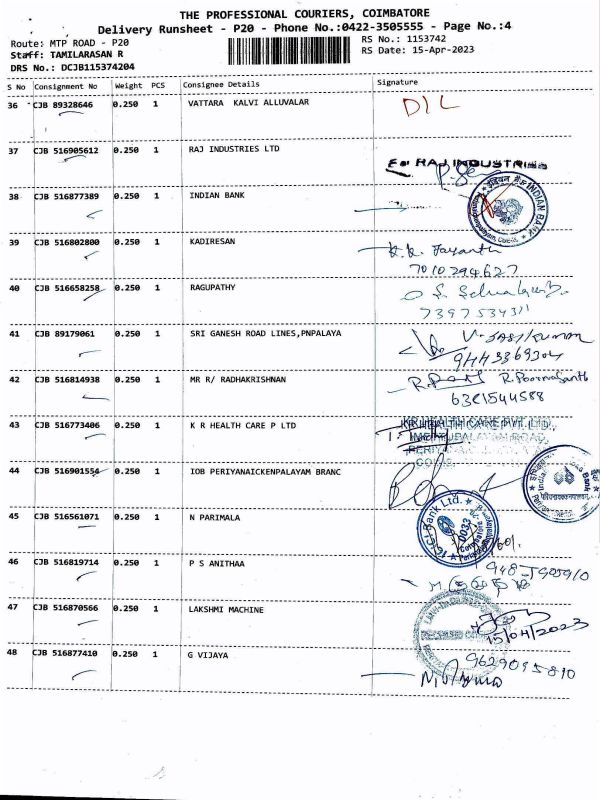 THE PROFESSIONAL COURIERS, COIMBATORE
Delivery Runsheet - P20 - Phone No.:0422-3505555 - Page No.:4
Route: MTP ROAD - P20
RS No.: 1153742
Staff: TAMILARASAN R
RS Date: 15-Apr-2023
DRS No.: DCJB115374204
S No Consignment No Weight PCS Consignee Details Signature
36 CJB 89328646 0.250 1 VATTARA KALVI ALLUVALAR
37 CJB 516905612 0.250 1 RAJ INDUSTRIES LTD
RAJ INDUSTRIES
38 CJB 516877389 0.250 1 INDIAN BANK
INDIAN BANK
39 CJB 516802800 0.250 1 KADIRESAN
7010294627
40 CJB 516658258 0.250 1 RAGUPATHY
7397534311
41 CJB 89179061 0.250 1 SRI GANESH ROAD LINES,PNPALAYA
V. SASIKUMAR
42 CJB 516814938 0.250 1 MR R/ RADHAKRISHNAN
6381544588
43 CJB 516773406 0.250 1 K R HEALTH CARE P LTD
KR HEALTH CARE PVT. LTD.,
44 CJB 516901554 0.250 1 IOB PERIYANAICKENPALYAM BRANC
45 CJB 516561071 0.250 1 N PARIMALA
ICICI Bank Ltd.
46 CJB 516819714 0.250 1 P S ANITHAA
47 CJB 516870566 0.250 1 LAKSHMI MACHINE
15/04/2023
48 CJB 516877410 0.250 1 G VIJAYA
9629095810